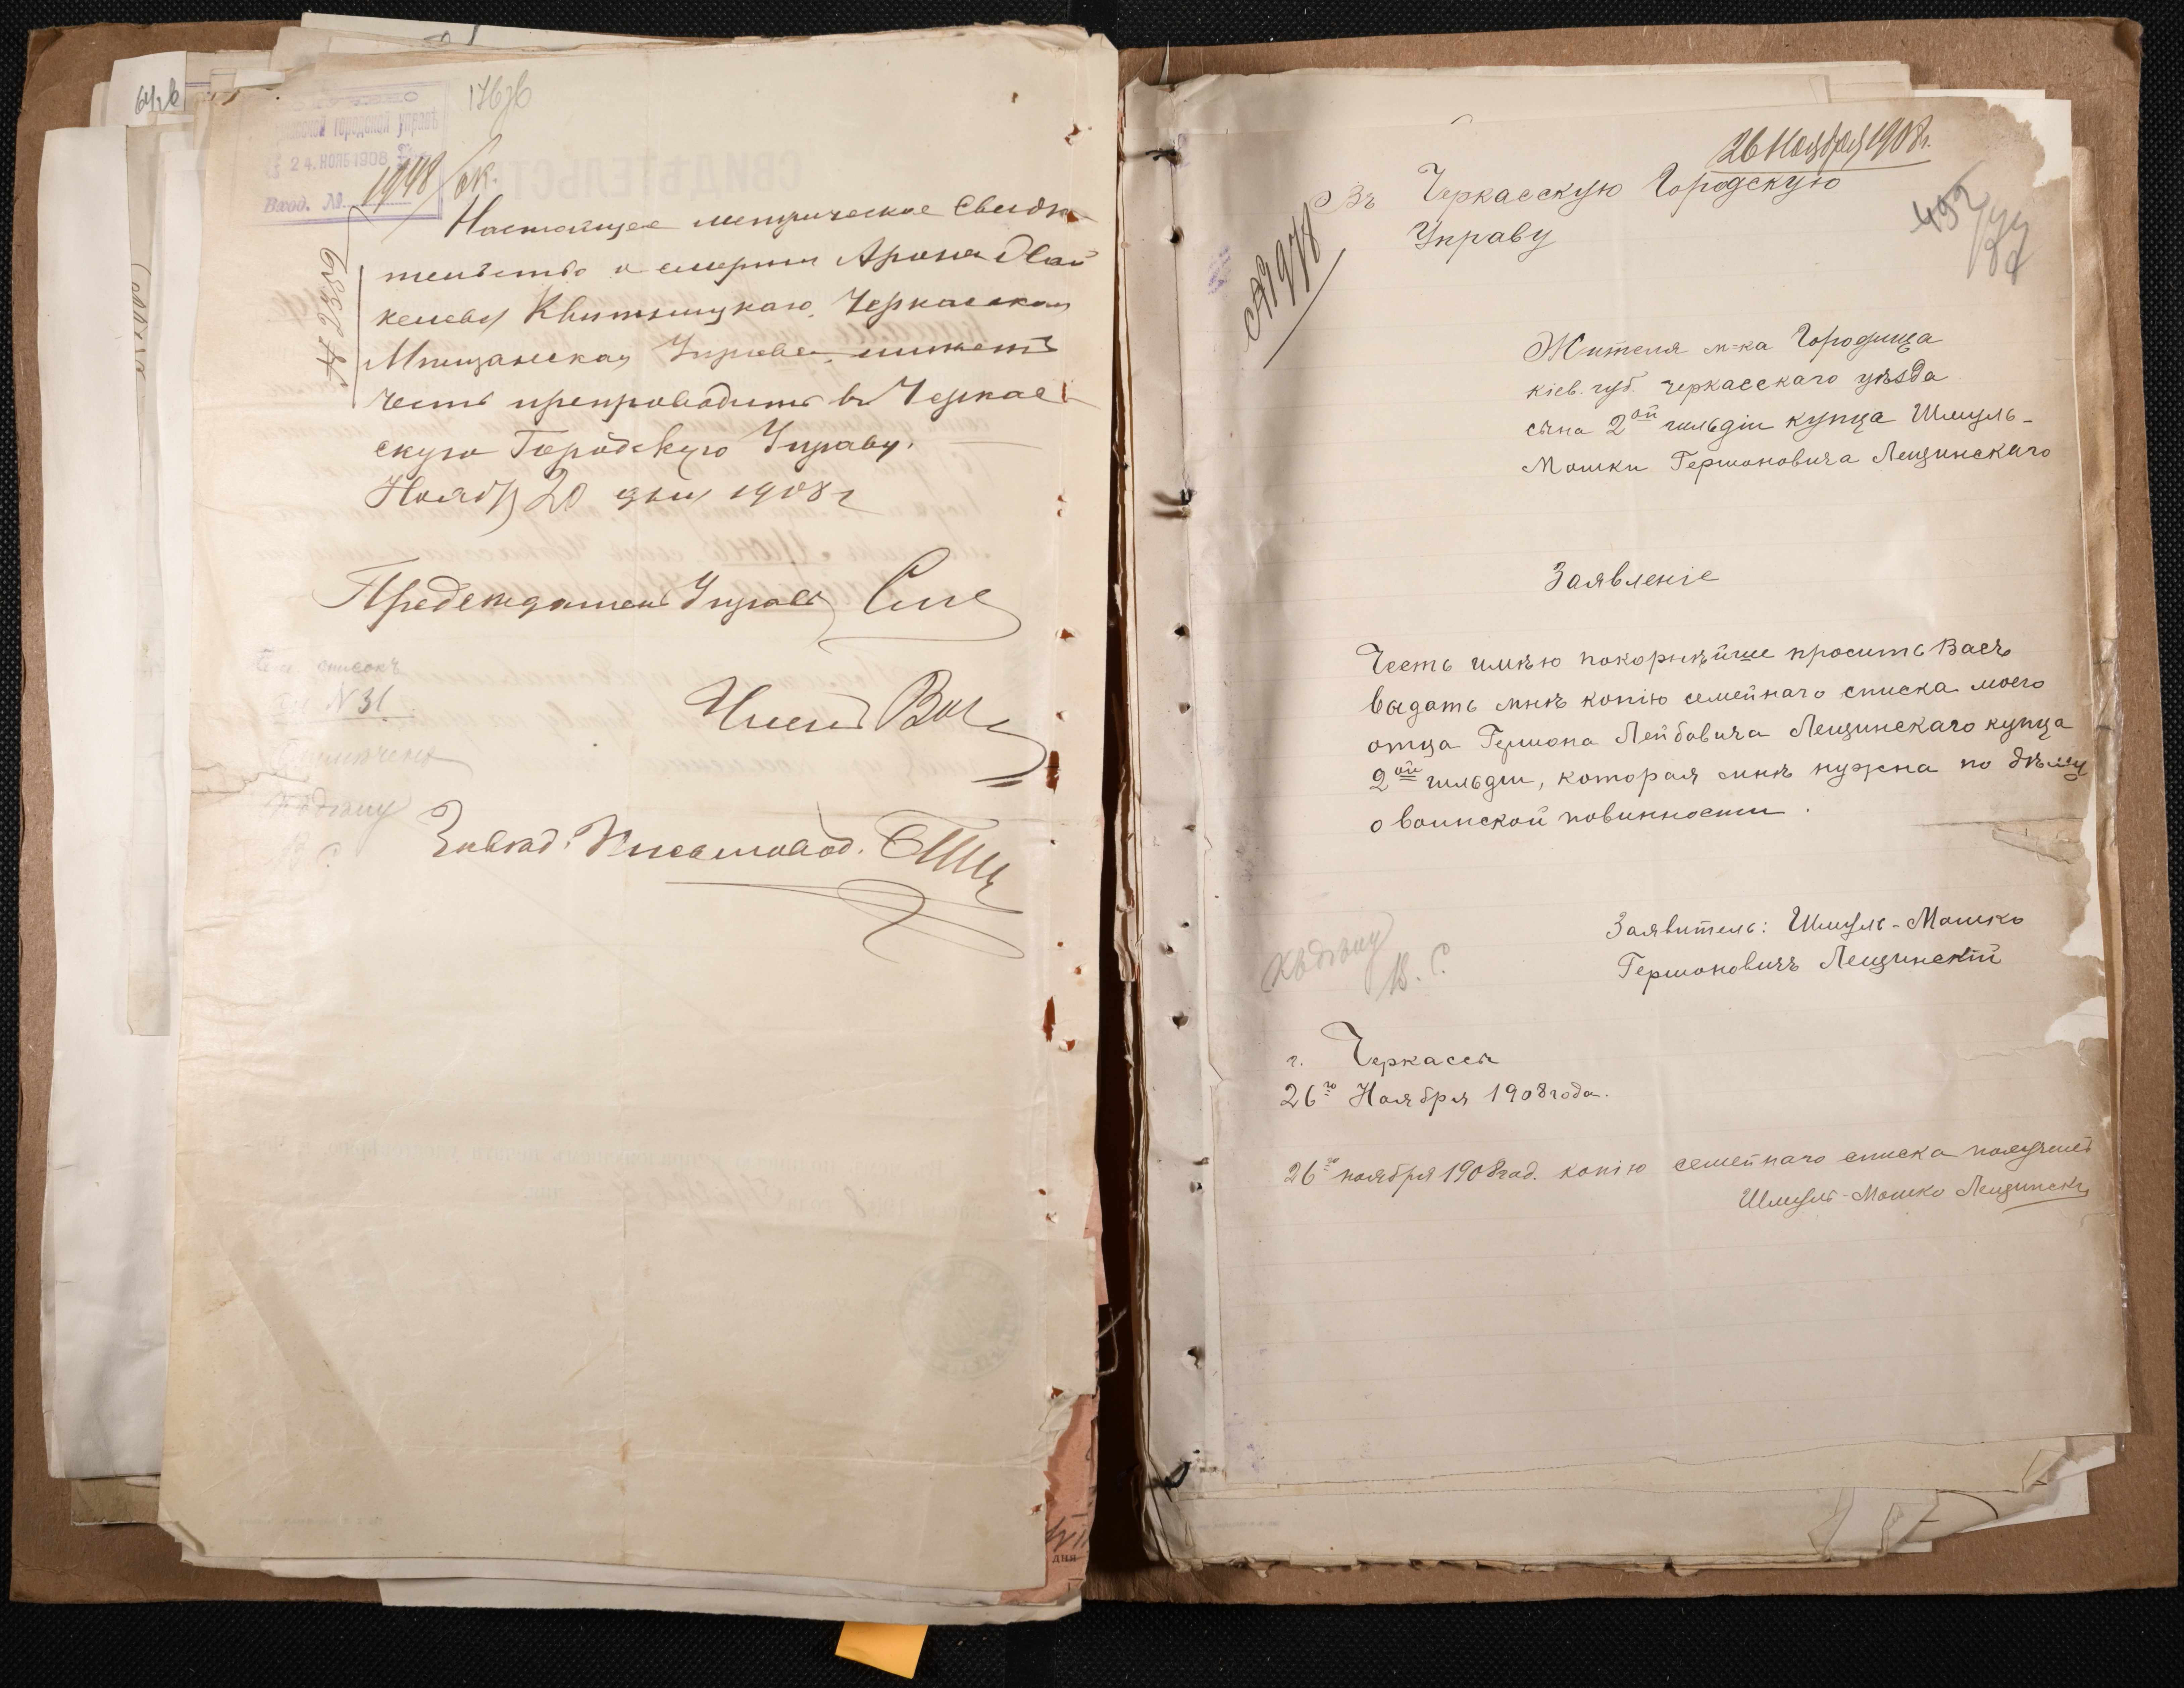 176об
Городской Управѣ
24. НОЯБ 1908
Вход. №
1948/ок.
№ 2359
Настоящее метрическое Свидѣ
тельство о смерти Арона
Квитницкаго, Черкасская
Мѣщанская Управа имѣетъ
честь препроводить въ Черкас
скую Городскую Управу.
Ноября 20 дня 1908 г
Предсѣдатель Управы
списокъ
N 31
Членъ
Къ дѣлу
Завѣд. Письмовод.
дня
26 Ноября 1908 г.
Въ Черкасскую Городскую
Управу
№ 1978
Жителя м-ка Городища
кіев. губ. черкасскаго уѣзда
сына 2ой гильдіи купца Шмуль-
Мошки Гершоновича Лещинскаго
Заявленіе
Честь имѣю покорнѣйше просить Васъ
выдать мнѣ копію семейнаго списка моего
отца Гершона Лейбовича Лещинскаго купца
2ой гильдіи, которая мнѣ нужна по дѣлу
о воинской повинности.
Заявитель: Шмуль-Мошко
Гершоновичъ Лещинскій
Къ дѣлу
В. С.
г. Черкассы
26го Ноября 1908 года.
26го ноября 1908 год. копію семейнаго списка получилъ
Шмуль-Мошко Лещинскій